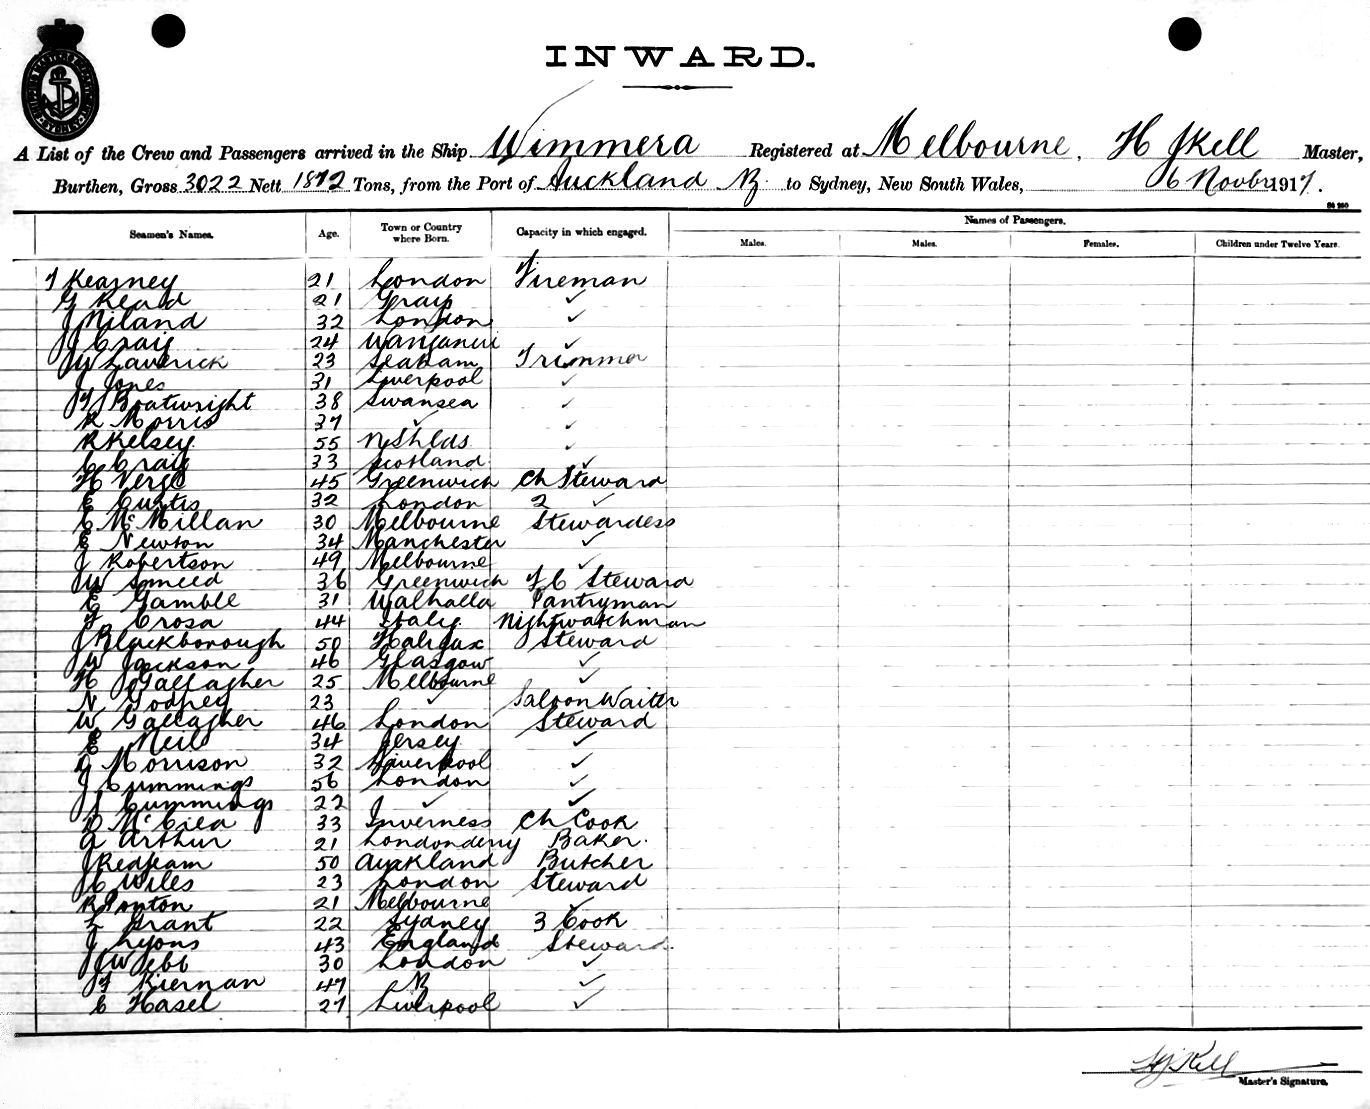 INWARD.
A List of the Crew and Passengers arrived in the Ship Wimmera Registered at Melbourne, H J Kell Master,
Burthen, Gross 3022 Nett 1872 Tons, from the Port of Auckland NZ to Sydney, New South Wales, 6 Novbr 1917.
Seamen's Names. Age. Town or Country where Born. Capacity in which engaged. Names of Passengers.
Males. Males. Females. Children under Twelve Years.
T Kearney 21 London Fireman
G Kead 21 Grays ✓
J Niland 32 London ✓
J Craig 24 Wanganui ✓
W Laverick 23 Seaham Trimmer
J Jones 31 Liverpool ✓
T J Boatwright 38 Swansea ✓
R Morris 37 ✓ ✓
R Kelsey 55 N Shlds ✓
C Craig 33 Scotland ✓
H Verge 45 Greenwich Ch Steward
E Curtis 32 London 2 ✓
C McMillan 30 Melbourne Stewardess
E Newton 34 Manchester ✓
J Robertson 49 Melbourne ✓
W Smeed 36 Greenwich F C Steward
E Gamble 31 Walhalla Pantryman
F Crosa 44 Italy Nightwatchman
J Blackborough 50 Halifax Steward
W Jackson 46 Glasgow ✓
H Gallagher 25 Melbourne ✓
N Godfrey 23 ✓ Saloon Waiter
W Gallagher 46 London Steward
E Neil 34 Jersey ✓
G Morrison 32 Liverpool ✓
J Cummings 56 London ✓
J J Cummings 22 ✓ ✓
D McCrea 33 Inverness Ch Cook
A Arthur 21 Londonderry Baker.
J Redfearn 50 Auckland Butcher
J C Wiles 23 London Steward
R Ponton 21 Melbourne ✓
L Grant 22 Sydney 3 Cook
J Lyons 43 England Steward
J W Jebb 30 London ✓
J F Kiernan 47 NZ ✓
C Hasel 27 Liverpool ✓
H J Kell
Master's Signature.